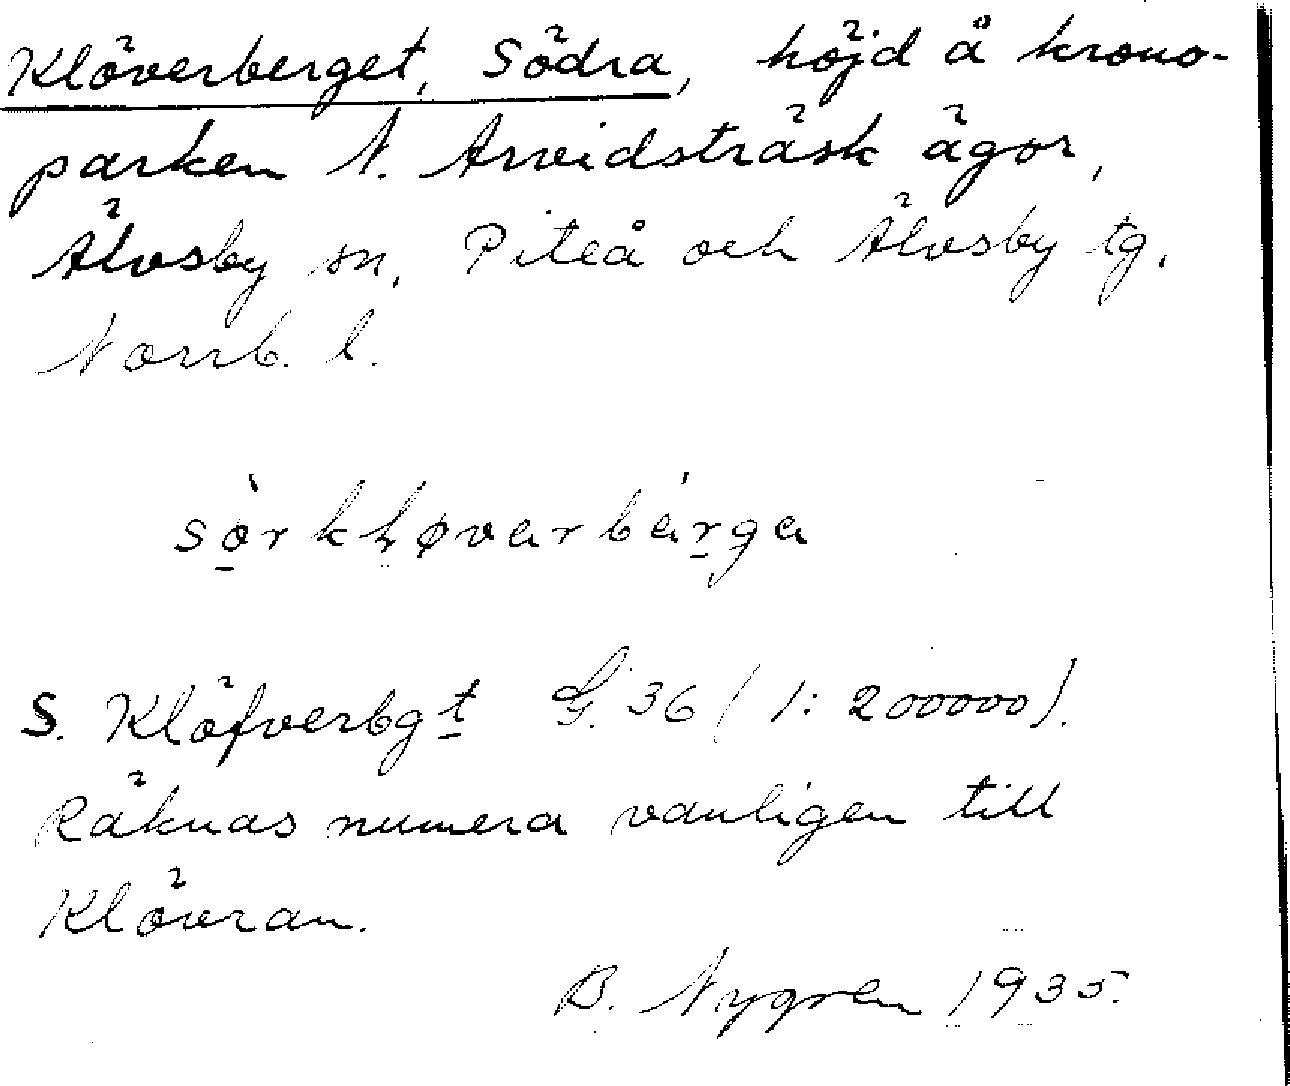 Klöverberget, Södra, höjd å krono-
parken N. Arvidsträsk ägor,
Älvsby sn, Piteå och Älvsby tg,
Norrb. l.
sò̱rkḷøvarbáṟga
S. Klöfverbgt G. 36 (1:200000).
Räknas numera vanligen till
Klövran.
B. Nygren 1935.